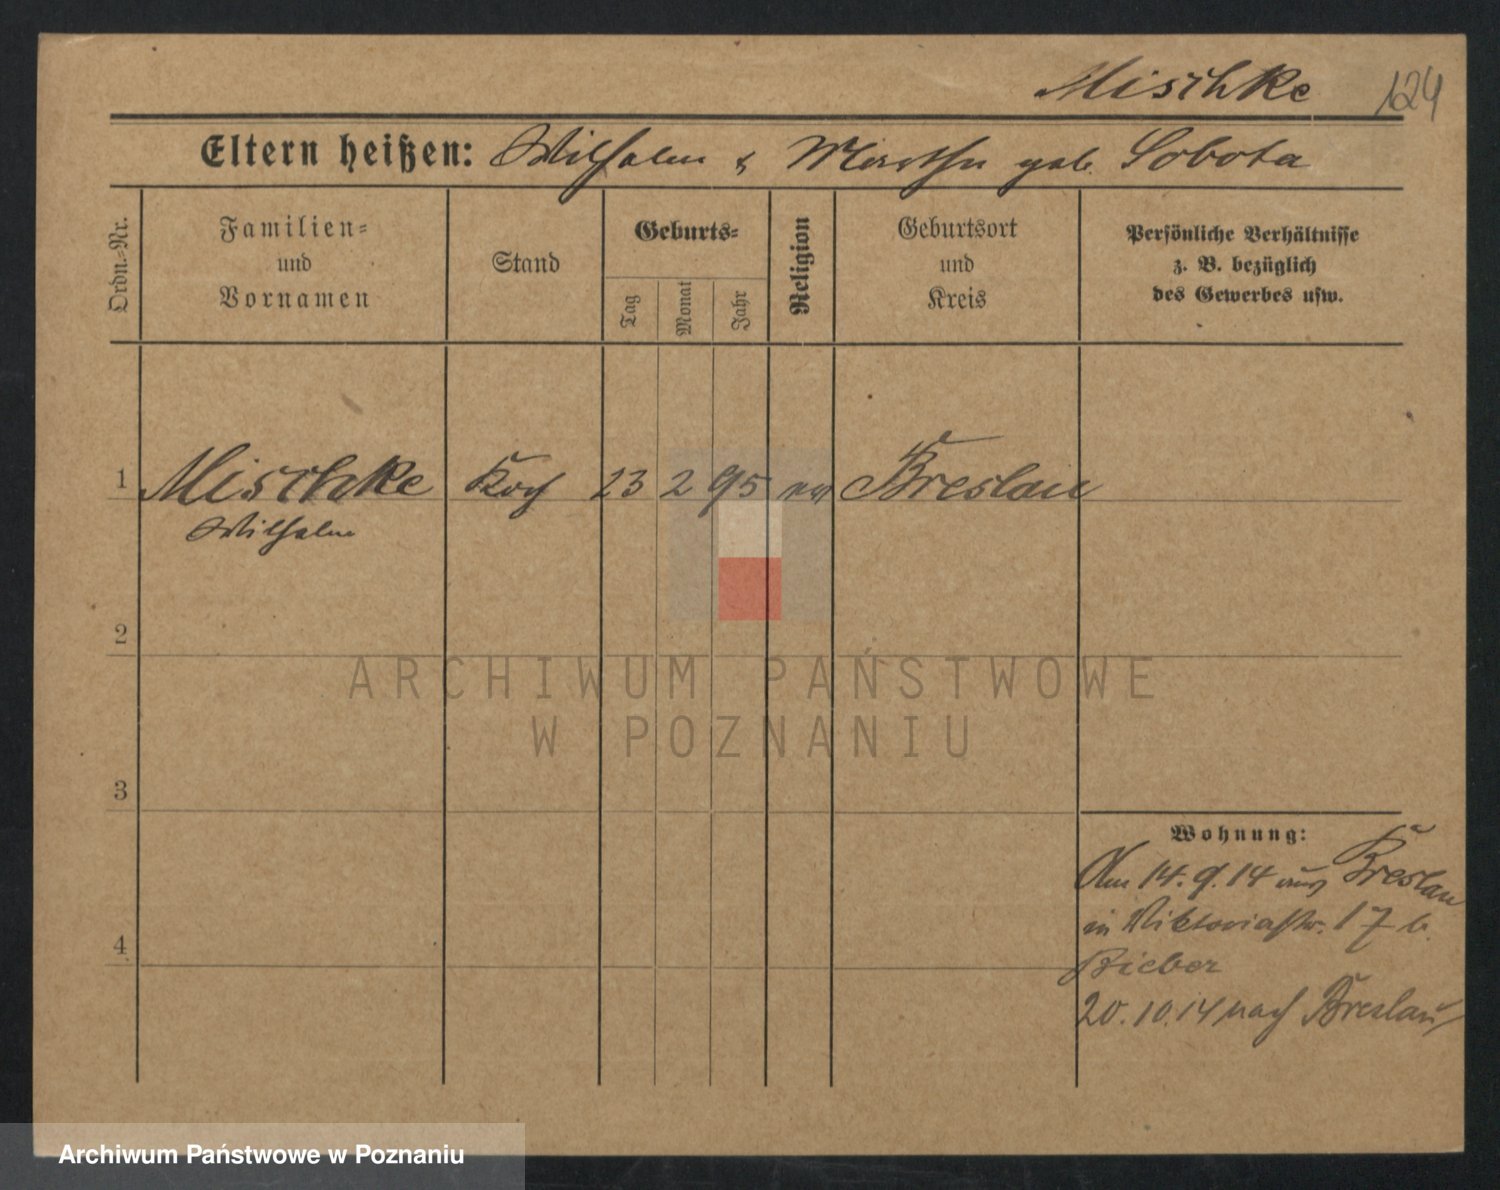 Mischke 124
Eltern heißen: Wilhelm & Martha geb. Sobota
Ordn.=Nr.
Familien=
und
Vornamen
Stand
Geburts=
Tag
Monat
Jahr
Religion
Geburtsort
und
Kreis
Persönliche Verhältnisse
z. B. bezüglich
des Gewerbes usw.
1 Mischke Koch 23 2 95 ev Breslau
Wilhelm
2
3
4
Wohnung:
Am 14.9.14 aus Breslau
in Viktoriastr. 17 b.
Bieber
20.10.14 nach Breslau
ARCHIWUM PAŃSTWOWE
W POZNANIU
Archiwum Państwowe w Poznaniu